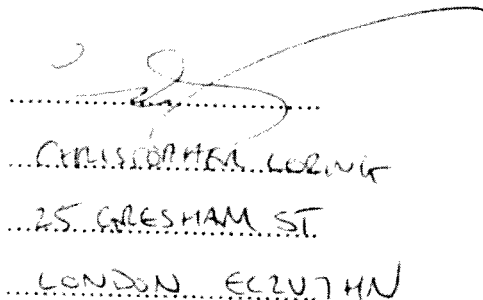 CHRISTOPHER LORING
25 GRESHAM ST
LONDON EC2V 7HN